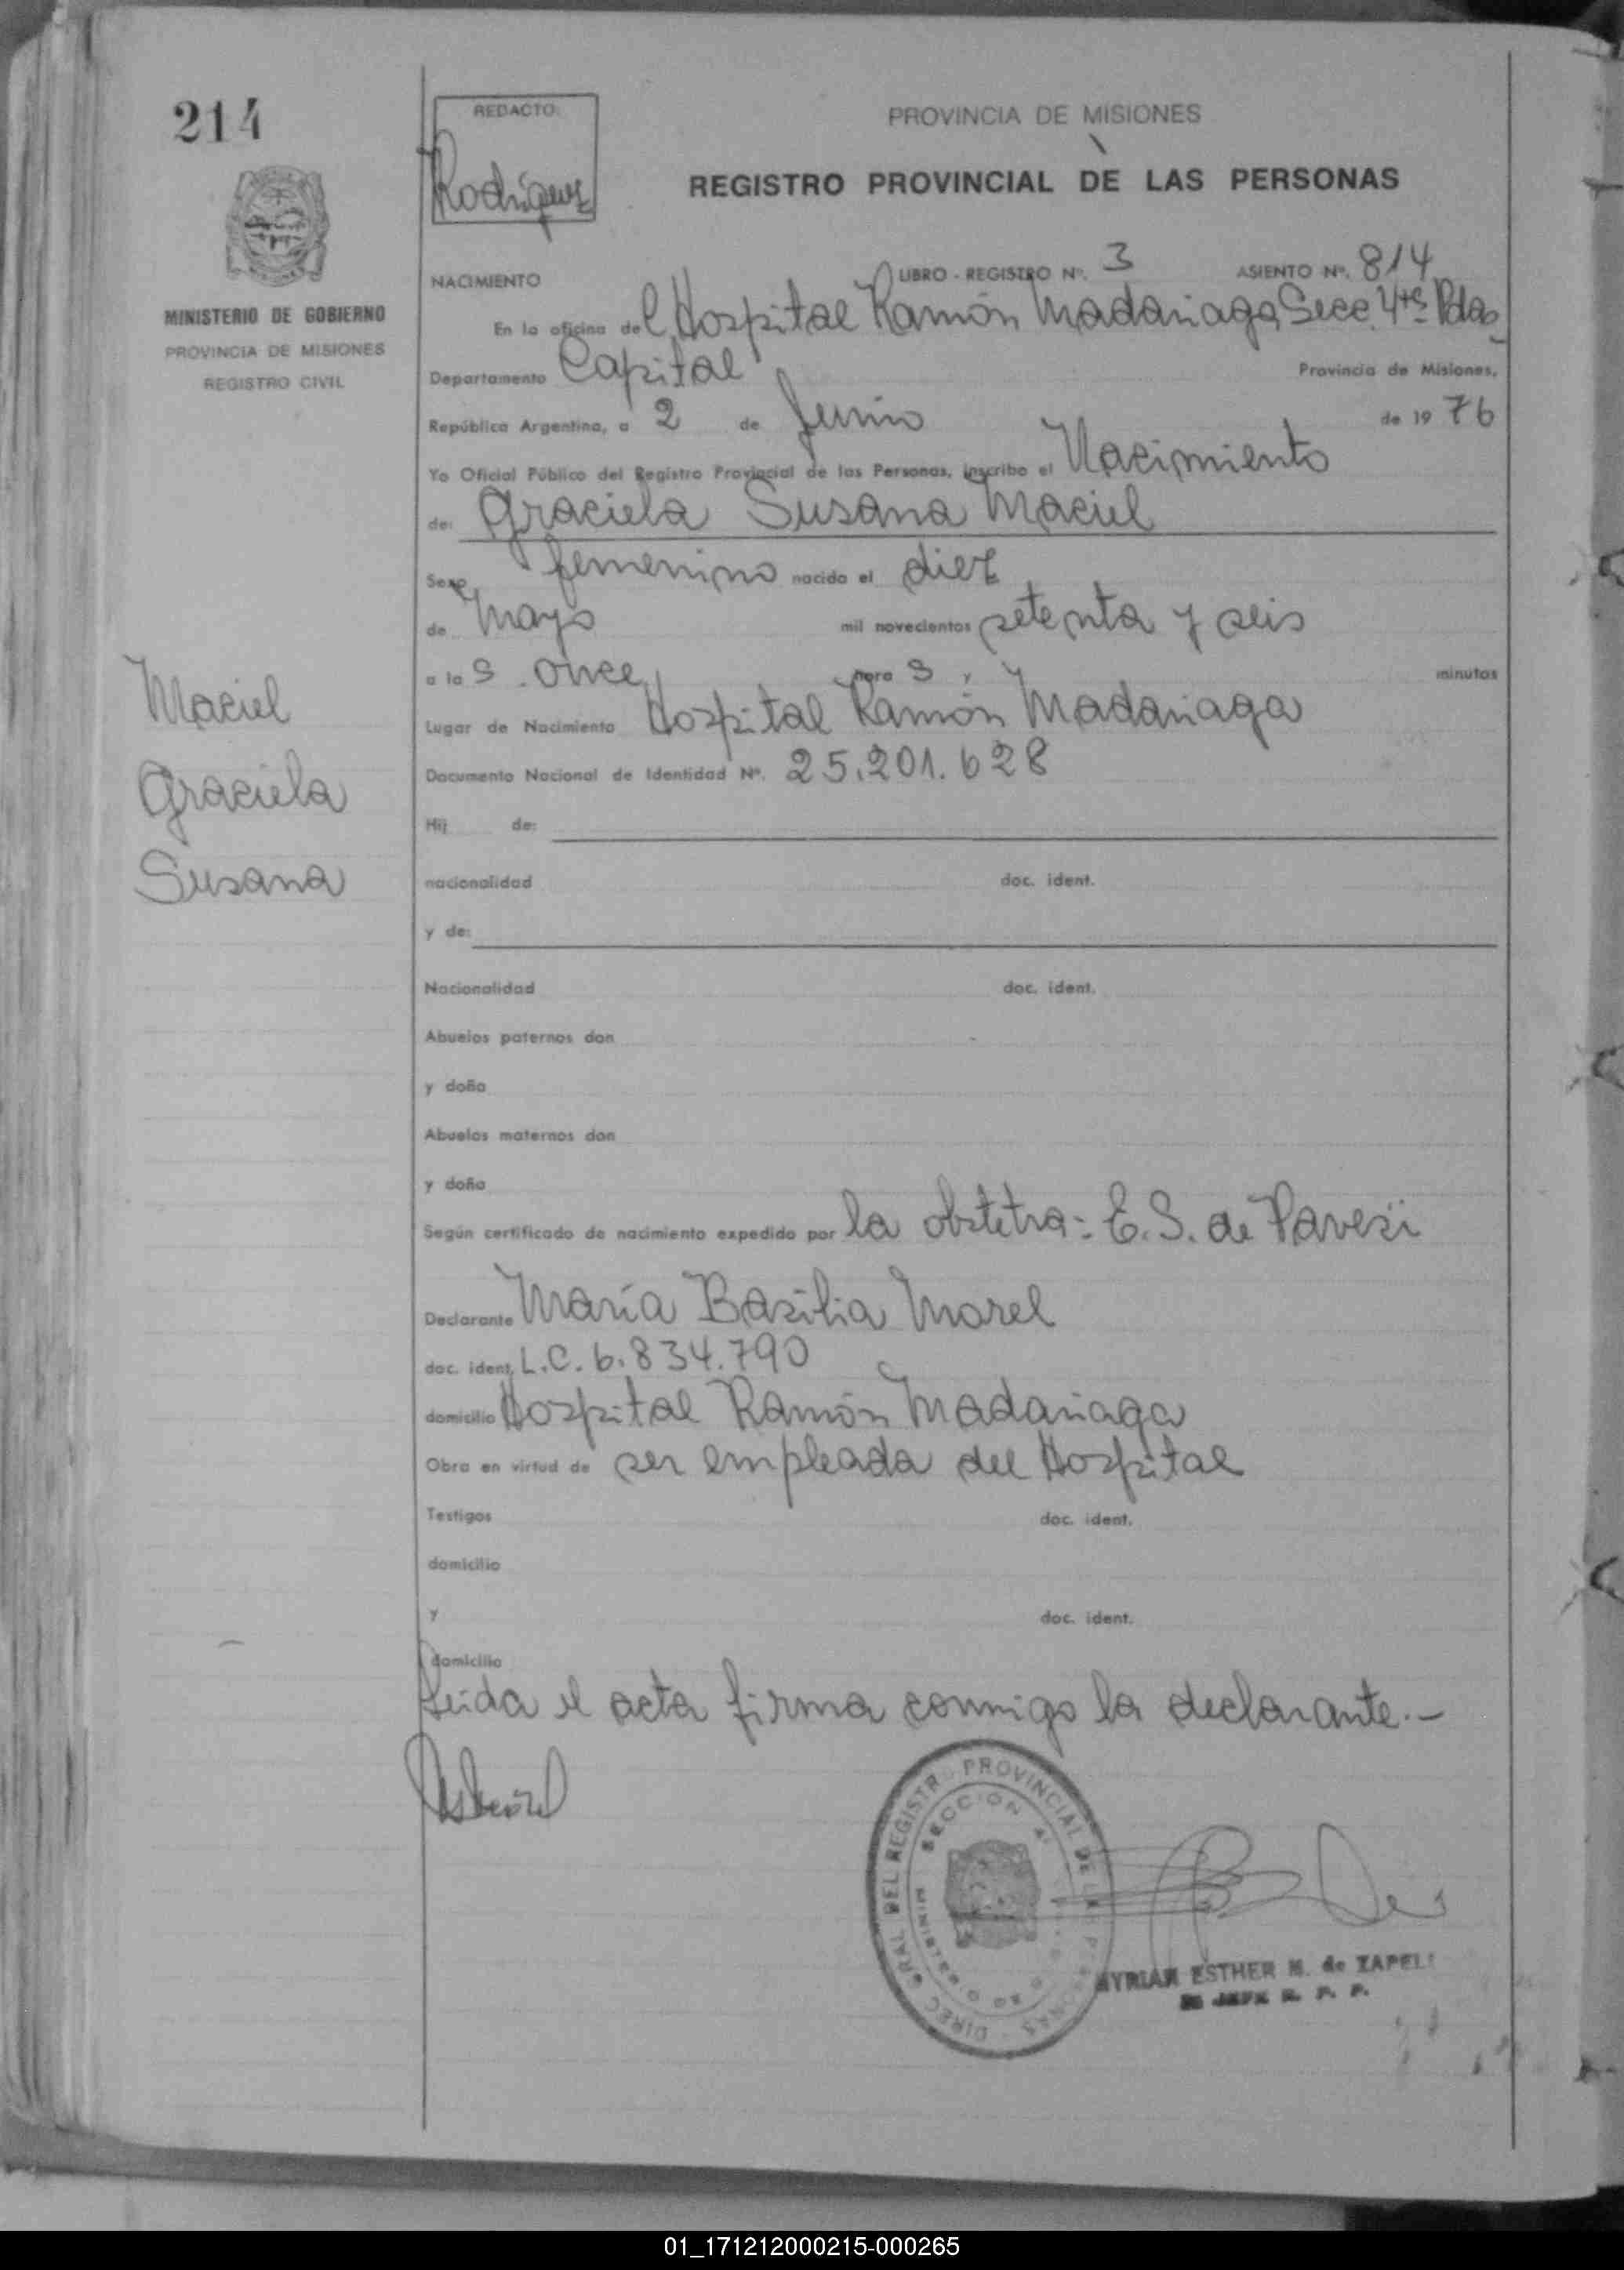 214
REDACTO:
Rodríguez
PROVINCIA DE MISIONES
REGISTRO PROVINCIAL DE LAS PERSONAS
MINISTERIO DE GOBIERNO
PROVINCIA DE MISIONES
REGISTRO CIVIL
NACIMIENTO LIBRO - REGISTRO Nº. 3 ASIENTO Nº. 814
En la oficina del Hospital Ramón Madariaga Secc. 4ta Pdas
Departamento Capital Provincia de Misiones,
República Argentina, a 2 de Junio de 1976
Yo Oficial Público del Registro Provincial de las Personas, inscribo el Nacimiento
de: Graciela Susana Maciel
Sexo femenino nacido el diez
de Mayo mil novecientos setenta y seis
a las once horas y minutos
Lugar de Nacimiento Hospital Ramón Madariaga
Documento Nacional de Identidad Nº. 25.201.628
Maciel
Graciela
Susana
Hij de:
nacionalidad doc. ident.
y de:
Nacionalidad doc. ident.
Abuelos paternos don
y doña
Abuelos maternos don
y doña
Según certificado de nacimiento expedido por la obstetra: E.S. de Pavesi
Declarante María Basilia Morel
doc. ident. L.C. 6.834.790
domicilio Hospital Ramón Madariaga
Obra en virtud de ser empleada del Hospital
Testigos doc. ident.
domicilio
y doc. ident.
domicilio
Leída el acta firma conmigo la declarante.-
DIREC GRAL DEL REGISTRO PROVINCIAL DE LAS PERSONAS
SECCION 4
MYRIAM ESTHER M. de ZAPELI
JEFE R. P. P.
01_171212000215-000265